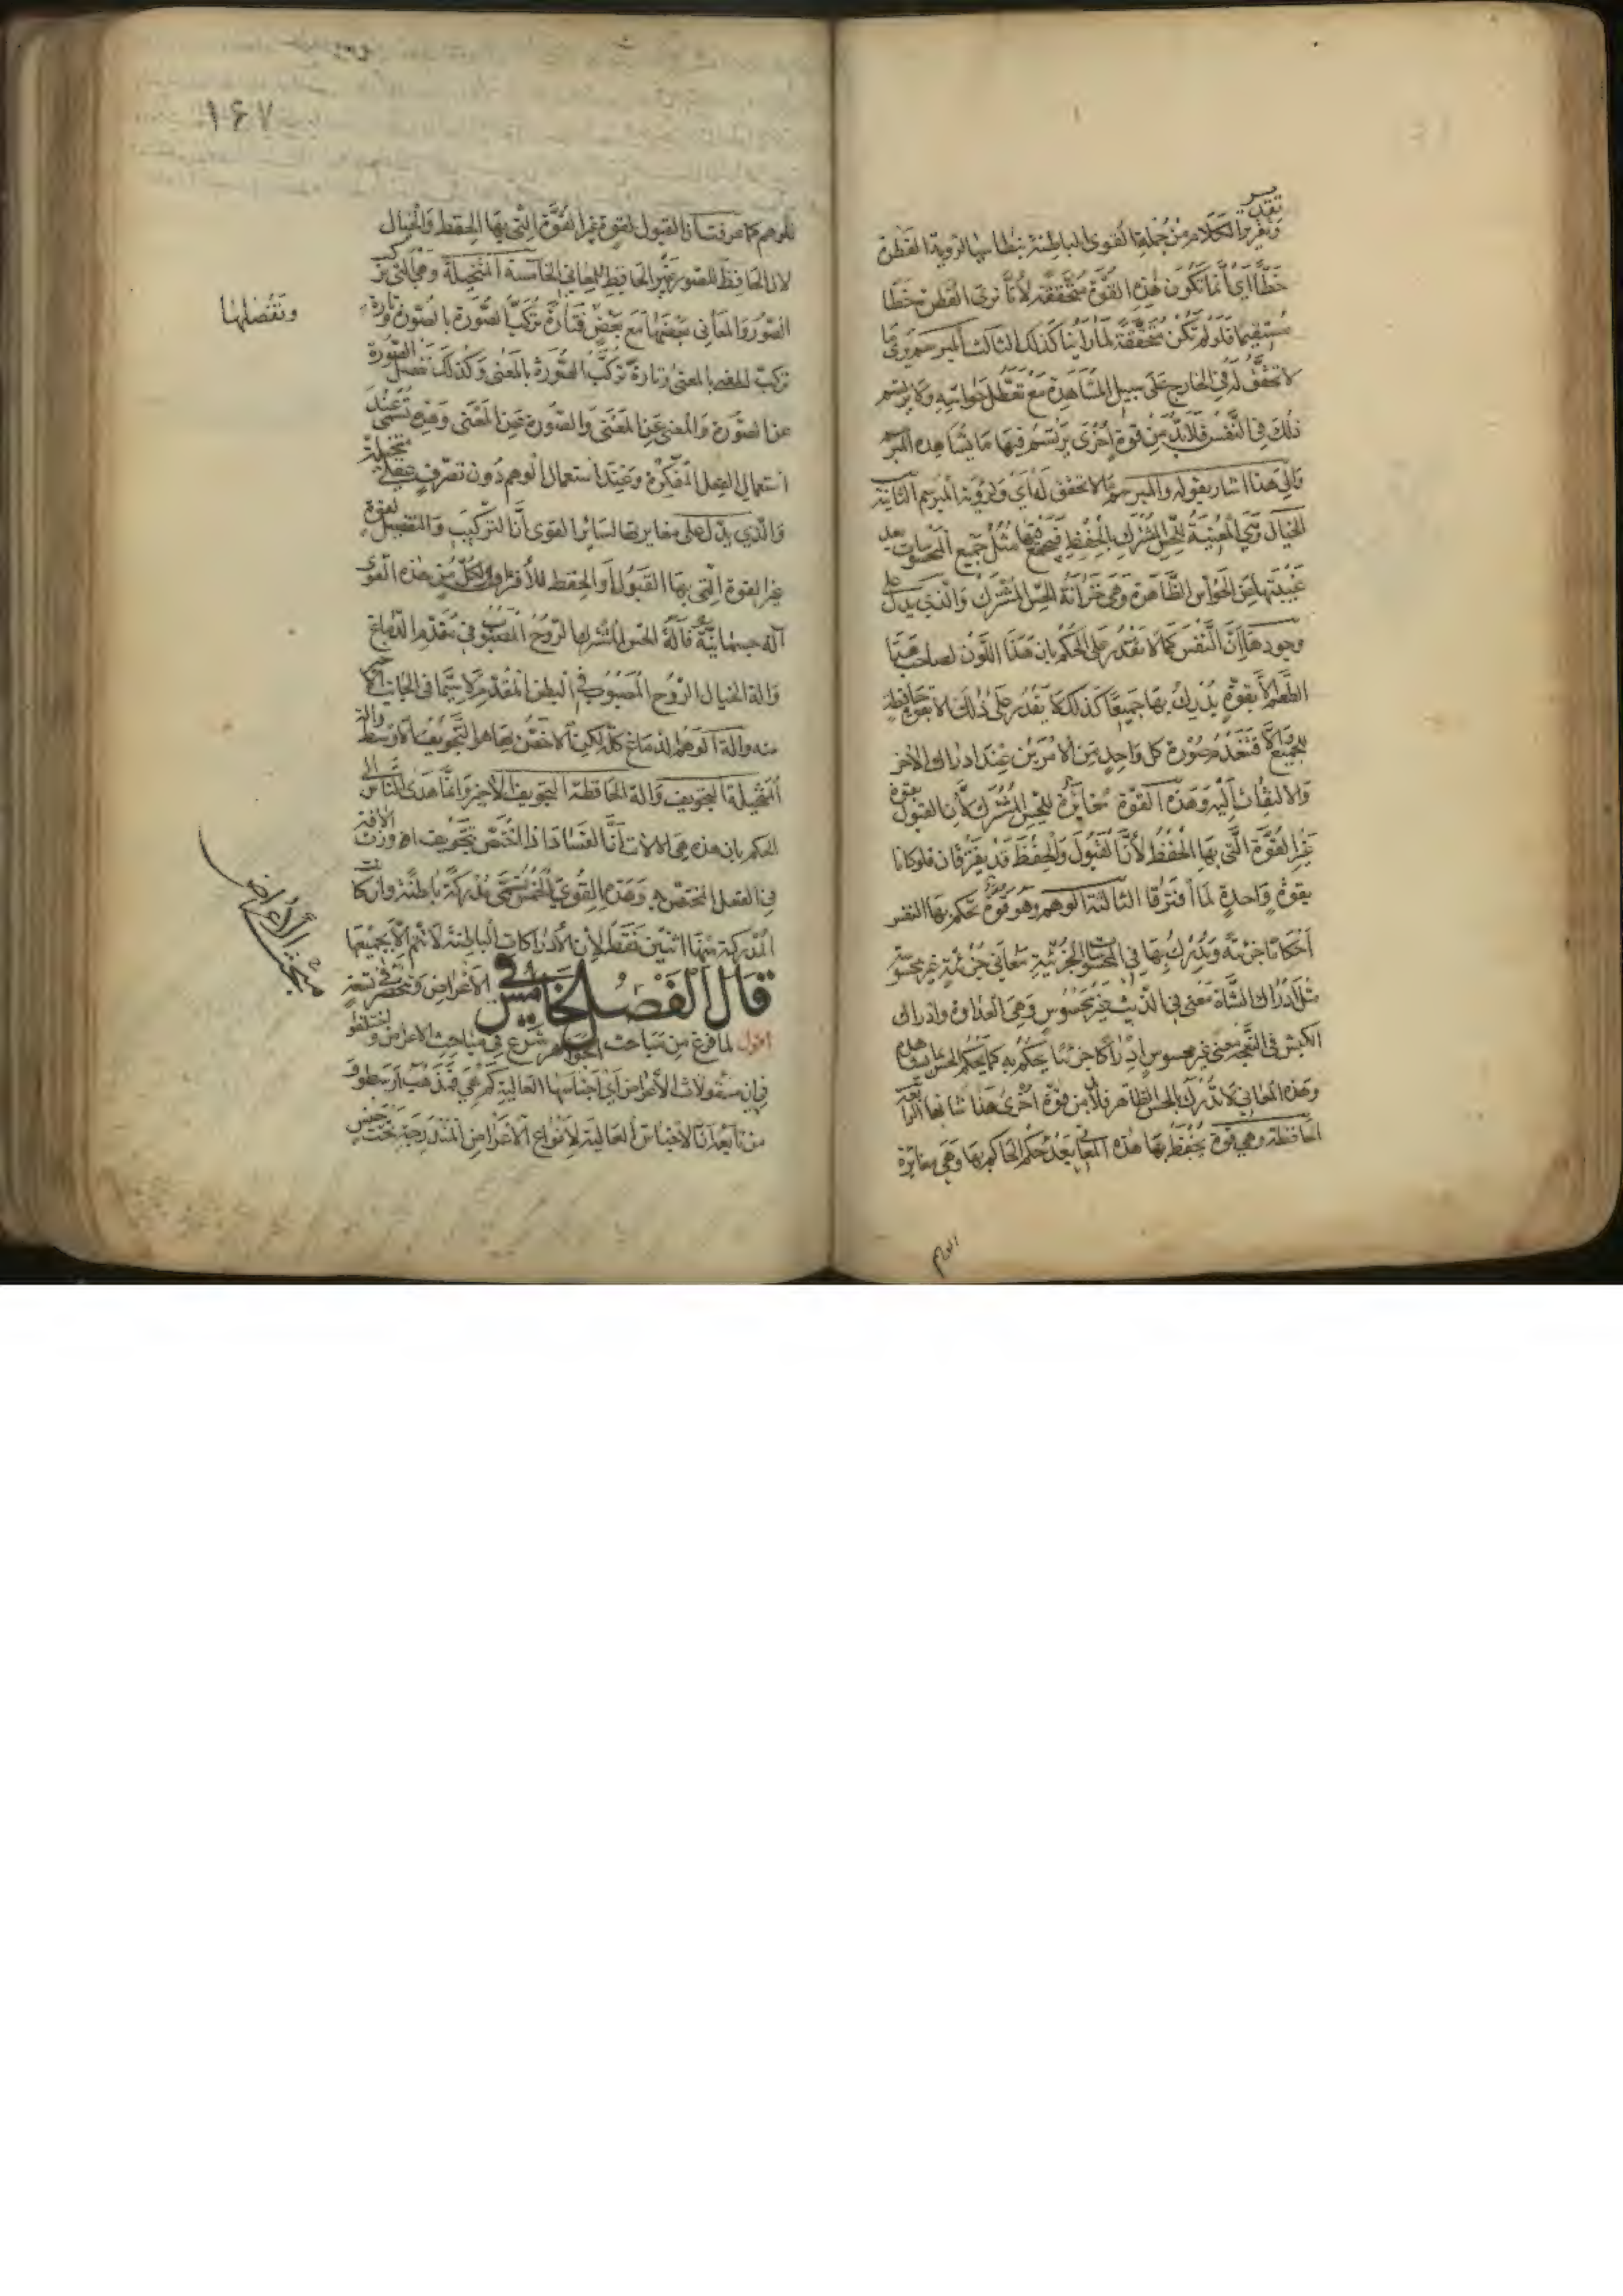 وتقرير الكلام من جملة القوى الباطنة بنطاسيا لرؤية القطرة
خطا اي انما تكون هذه القوة متحققة لأنا نرى القطر خطا
مستقيما فلو لم تكن متحققة لما راينا كذلك الثالث المبرسم يرى ما
لا تحقق له في الخارج على سبيل المشاهدة مع تعطل حواسه ولا يرتسم
ذلك في النفس فلا بد من قوة اخرى يرتسم فيها ما يشاهده المبرسم
والى هذا اشار بقوله والمبرسم ما لا تحقق له اي ولرؤية المبرسم الثانية
الخيال وهي المعينة للحس المشترك بالحفظ فيجمع فيها مثل جميع المحسوسات بعد
غيبتها عن الحواس الظاهرة وهي خزانة الحس المشترك والذي يدل على
وجودها ان النفس كما لا تقدر على الحكم بان هذا اللون لصاحب هذا
الطعم الا بقوة يدرك بها جميعا كذلك لا يقدر على ذلك الا بقوة حافظة
للجميع والا فتنعدم صورة كل واحد من الامرين عند ادراك الاخر
والالتفات اليه وهذه القوة مغايرة للحس المشترك لان القبول بقوة
غير القوة التي بها الحفظ لأن القبول والحفظ قد يفترقان فلو كانا
بقوة واحدة لما افترقا الثالثة الوهم وهو قوة تحكم بها النفس
احكاما جزئية ويدرك بها في المحسوسات الجزئية معاني جزئية غير محسوسة
مثل ادراك الشاة معنى في الذئب غير محسوس وهي العداوة وادراك
الكبش في النعجة معنى غير محسوس ادراكا جزئيا يحكم به كما يحكم الحس بما يشاهده
وهذه المعاني لا تدرك بالحس الظاهر فلا بد من قوة اخرى هذا شانها الرابعة
الحافظة وهي قوة يحفظ بها هذه المعاني بعد حكم الحاكم بها وهي مغايرة
الوهم
١٦٧
للوهم كما عرفت ان القبول لقوة غير القوة التي بها الحفظ والخيال
لان الحافظ للصور غير الحافظ للمعاني الخامسة المتخيلة وهي التي تركب
الصور والمعاني بعضها مع بعض فتارة تركب الصورة بالصورة وتارة
وتفصلها
تركب المعنى بالمعنى وتارة تركب الصورة بالمعنى وكذلك تفصل الصورة
عن الصورة والمعنى عن المعنى والصورة عن المعنى وهذه تسمى عند
استعمال العقل المفكرة وعند استعمال الوهم دون تصرف عقلي متخيلة
والذي يدل على مغايرتها لسائر القوى أن التركيب والتفصيل لقوة
غير القوة التي بها القبول او الحفظ للافتراق ولكل من هذه القوى
آلة جسمانية فآلة الحس المشترك الروح المصبوب في مقدم الدماغ
والة الخيال الروح المصبوب في البطن المقدم لا سيما في الجانب الاخير
منه والة الوهم الدماغ كله لكن الاخص بها هو التجويف الاوسط والة
المتخيلة التجويف والة الحافظة التجويف الاخير وانما هدى الناس الى
الحكم بان هذه هي الالات أن الفساد اذا اختص بتجويف اورث الآفة
في الفعل المختص به وهذه القوى الخمس تسمى مدركة باطنة وان كانت
المدركة منها اثنين فقط لان الادراكات الباطنة لا تتم الا بجميعها
قال الفصل الخامس في الاعراض وتنحصر في تسعة
اقول لما فرغ من مباحث الجواهر شرع في مباحث الاعراض واختلفوا
في ان مقولات الاعراض اي اجناسها العالية كم هي فمذهب ارسطو و
من تابعه ان الاجناس العالية لانواع الاعراض المندرجة تحت جنس
مبحث الاعراض